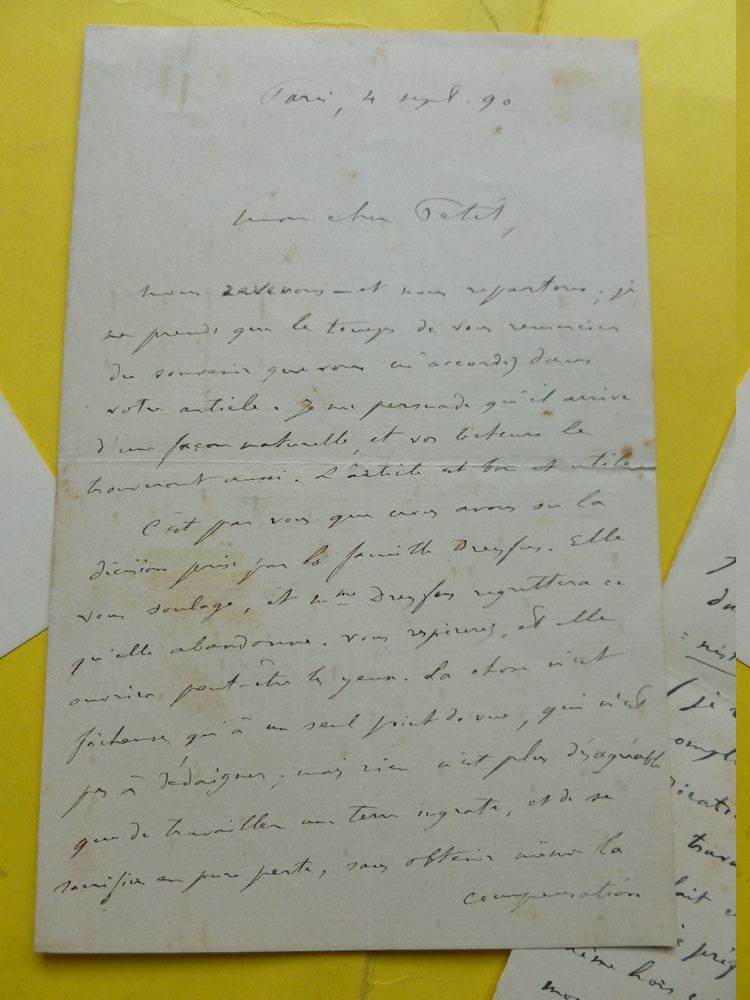 Paris, 4 sept. 90
mon cher Petit,
nous revenons — et nous repartons ; je
ne prends que le temps de vous remercier
du souvenir que vous m'accordez dans
votre article. Je me persuade qu'il arrive
d'une façon naturelle, et vos lecteurs le
trouveront aussi. L'article est bon et utile.
C'est par vous que nous avons su la
décision prise par la famille Dreyfus. Elle
vous soulage, et mme Dreyfus regrettera ce
qu'elle abandonne. Vous respirerez, et elle
ouvrira peut-être les yeux. La chose n'est
fâcheuse qu'à un seul point de vue, qui n'est
pas à dédaigner ; mais rien n'est plus désagréable
que de travailler une terre ingrate, et de se
sacrifier en pure perte, sans obtenir même la
compensation
du
(je
compl
trava
fait
même hors
mo